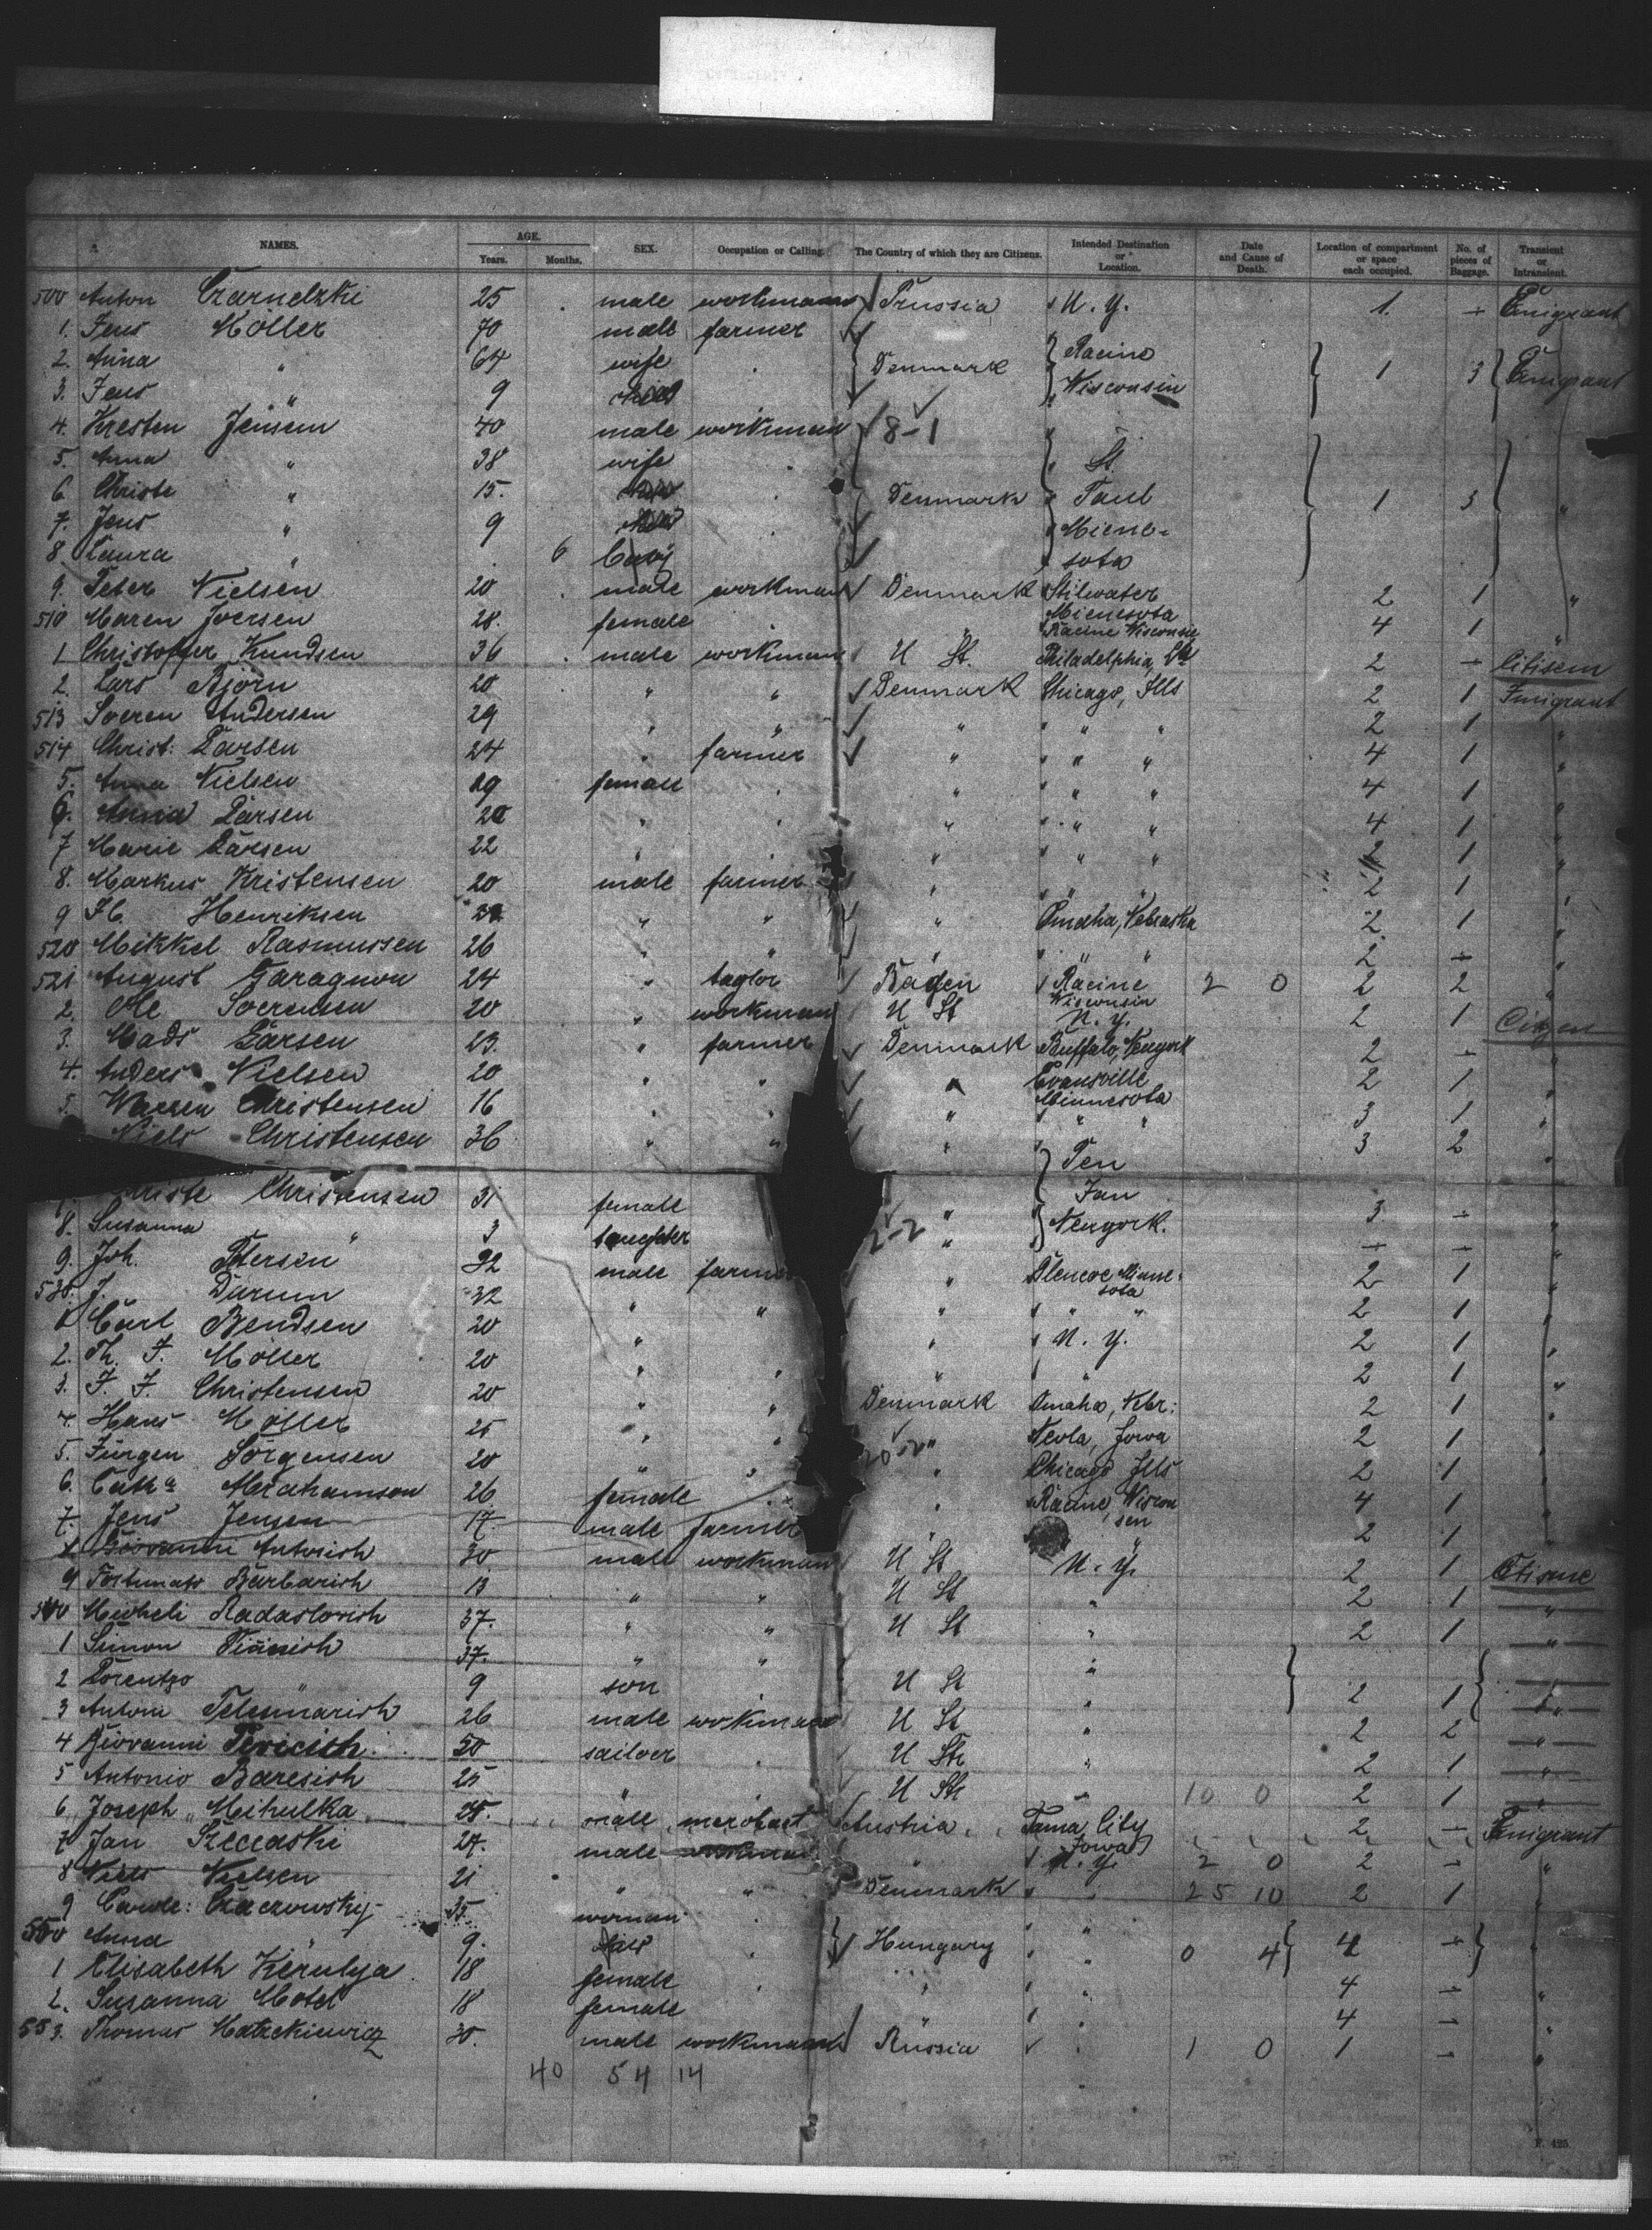 NAMES. AGE. Years. Months. SEX. Occupation or Calling. The Country of which they are Citizens. Intended Destination or Location. Date and Cause of Death. Location of compartment or space each occupied. No. of pieces of Baggage. Transient or Intransient.
500 Anton Czarnelzki 25 male workman Prussia N. Y. 1. - Emigrant
1. Jens Möller 70 male farmer
2. Anna " 64 wife Denmark Racine 1 3 Emigrant
3. Jens " 9 Wisconsin
4. Kresten Jensen 40 male workman 8-1
5. Anna " 38 wife St.
6. Christe " 15. Denmark Paul 1 3 "
7. Jens " 9 Miene-
8 Laura " 6 baby sota
9. Peter Nielsen 20 male workman Denmark Stilwater Mienesota 2 1 "
510 Maren Joersen 28. female " Racine Wisconsin 4 1 "
1 Christoffer Kundsen 36 male workman U St. Philadelphia, Pa 2 - Citisem
2. Lars Björn 20 " " Denmark Chicago, Ills 2 1 Emigrant
513 Soeren Andersen 29 " " " " " 2 1 "
514 Christ: Larsen 24 " farmer " " " 4 1 "
5. Anna Nielsen 29 female " " " 4 1 "
6. Anna Larsen 20 " " " " 4 1 "
7 Marie Larsen 22 " " " " 2 1 "
8. Markus Kristensen 20 male farmer " " " 2 1 "
9 Henriksen " " " Omaha, Nebraska 2 1 "
520 Mikkel Rasmussen 26 " " " " " 2 - "
521 August Taragnon 24 " taylor Baden Racine Wisconsin 2 0 2 2 "
2. Ole Soerensen 20 " workman U St N. Y. 2 1 Citizen
3. Mads Larsen 23. " farmer Denmark Buffalo, Newyork 2 - "
4. Anders Nielsen 20 " " " Evansville 2 1 "
5. Christensen 16 " " " Minnesota 3 1 "
Niels Christensen 36 " " " " " 3 2 "
Christensen 31 female " Pen Jan 3 - "
8. Susanna " 3 2-2 " Newyork. - - "
9. Joh. Petersen 32 male farmer " Glencoe Minnesota 2 1 "
530. J. Durum 32 " " " " " 2 1 "
1 Carl Bendsen 20 " " N. Y. 2 1 "
2. Th. J. Möller 20 " " " " 2 1 "
3. J. J. Christensen 20 " " Denmark Omaha, Nebr: 2 1 "
4. Hans Möller 25 " " " Neola, Jowa 2 1 "
5. Jürgen Sörgensen 20 " " " Chicago Ills 2 1 "
6. Cath: Abrahamson 26 female " Racine, Wisconsen 4 1 "
7. Jens Jensen 17 male farmer " " 2 1 "
Giovanni Antonish 30 male workman U St N. Y. 2 1 Citisene
9 Fortunato Barbarish 13 " " U St " 2 1 "
540 Micheli Radaslovish 37. " " U St " 2 1 "
1 Simon 37. " " "
2 Lorentzo " 9 son U St 2 1 "
3 Antoni 26 male workman U St " 2 2 "
4 Giovanni 50 sailoer U St " 2 1 "
5 Antonio Baresish 25 " U St " 10 0 2 1 "
6. Joseph Mikulka 25. male merchant Austria Tama City Jowa 2 - Emigrant
7 Jan 27. male " N. Y. 2 0 2 - "
8 Niels Nielsen 21 " " Denmark " " 25 10 2 1 "
9 Carole: 35 woman "
550 Anna " 9. Hungary " " 0 4 4 - "
1 Elisabeth Kerulya 18 female " " 4 - "
2. Susanna Motel 18 female " " 4 - "
553. Thomas Matzekiewicz 30. male workman Russia " 1 0 1 - "
40 54 14
F. 425